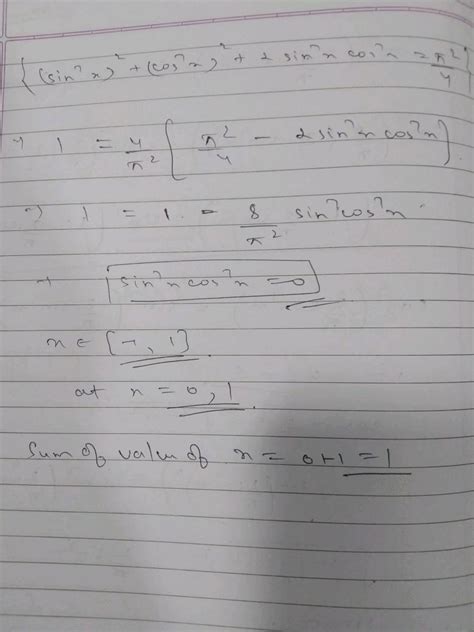 {(sin⁻¹x)² + (cos⁻¹x)² + 2 sin⁻¹x cos⁻¹x = π²/4}
→ 1 = 4/π² [π²/4 - 2 sin⁻¹x cos⁻¹x]
→ 1 = 1 - 8/π² sin⁻¹cos⁻¹x
→ sin⁻¹x cos⁻¹x = 0
x ∈ [-1, 1]
at x = 0, 1
Sum of value of x = 0+1 = 1